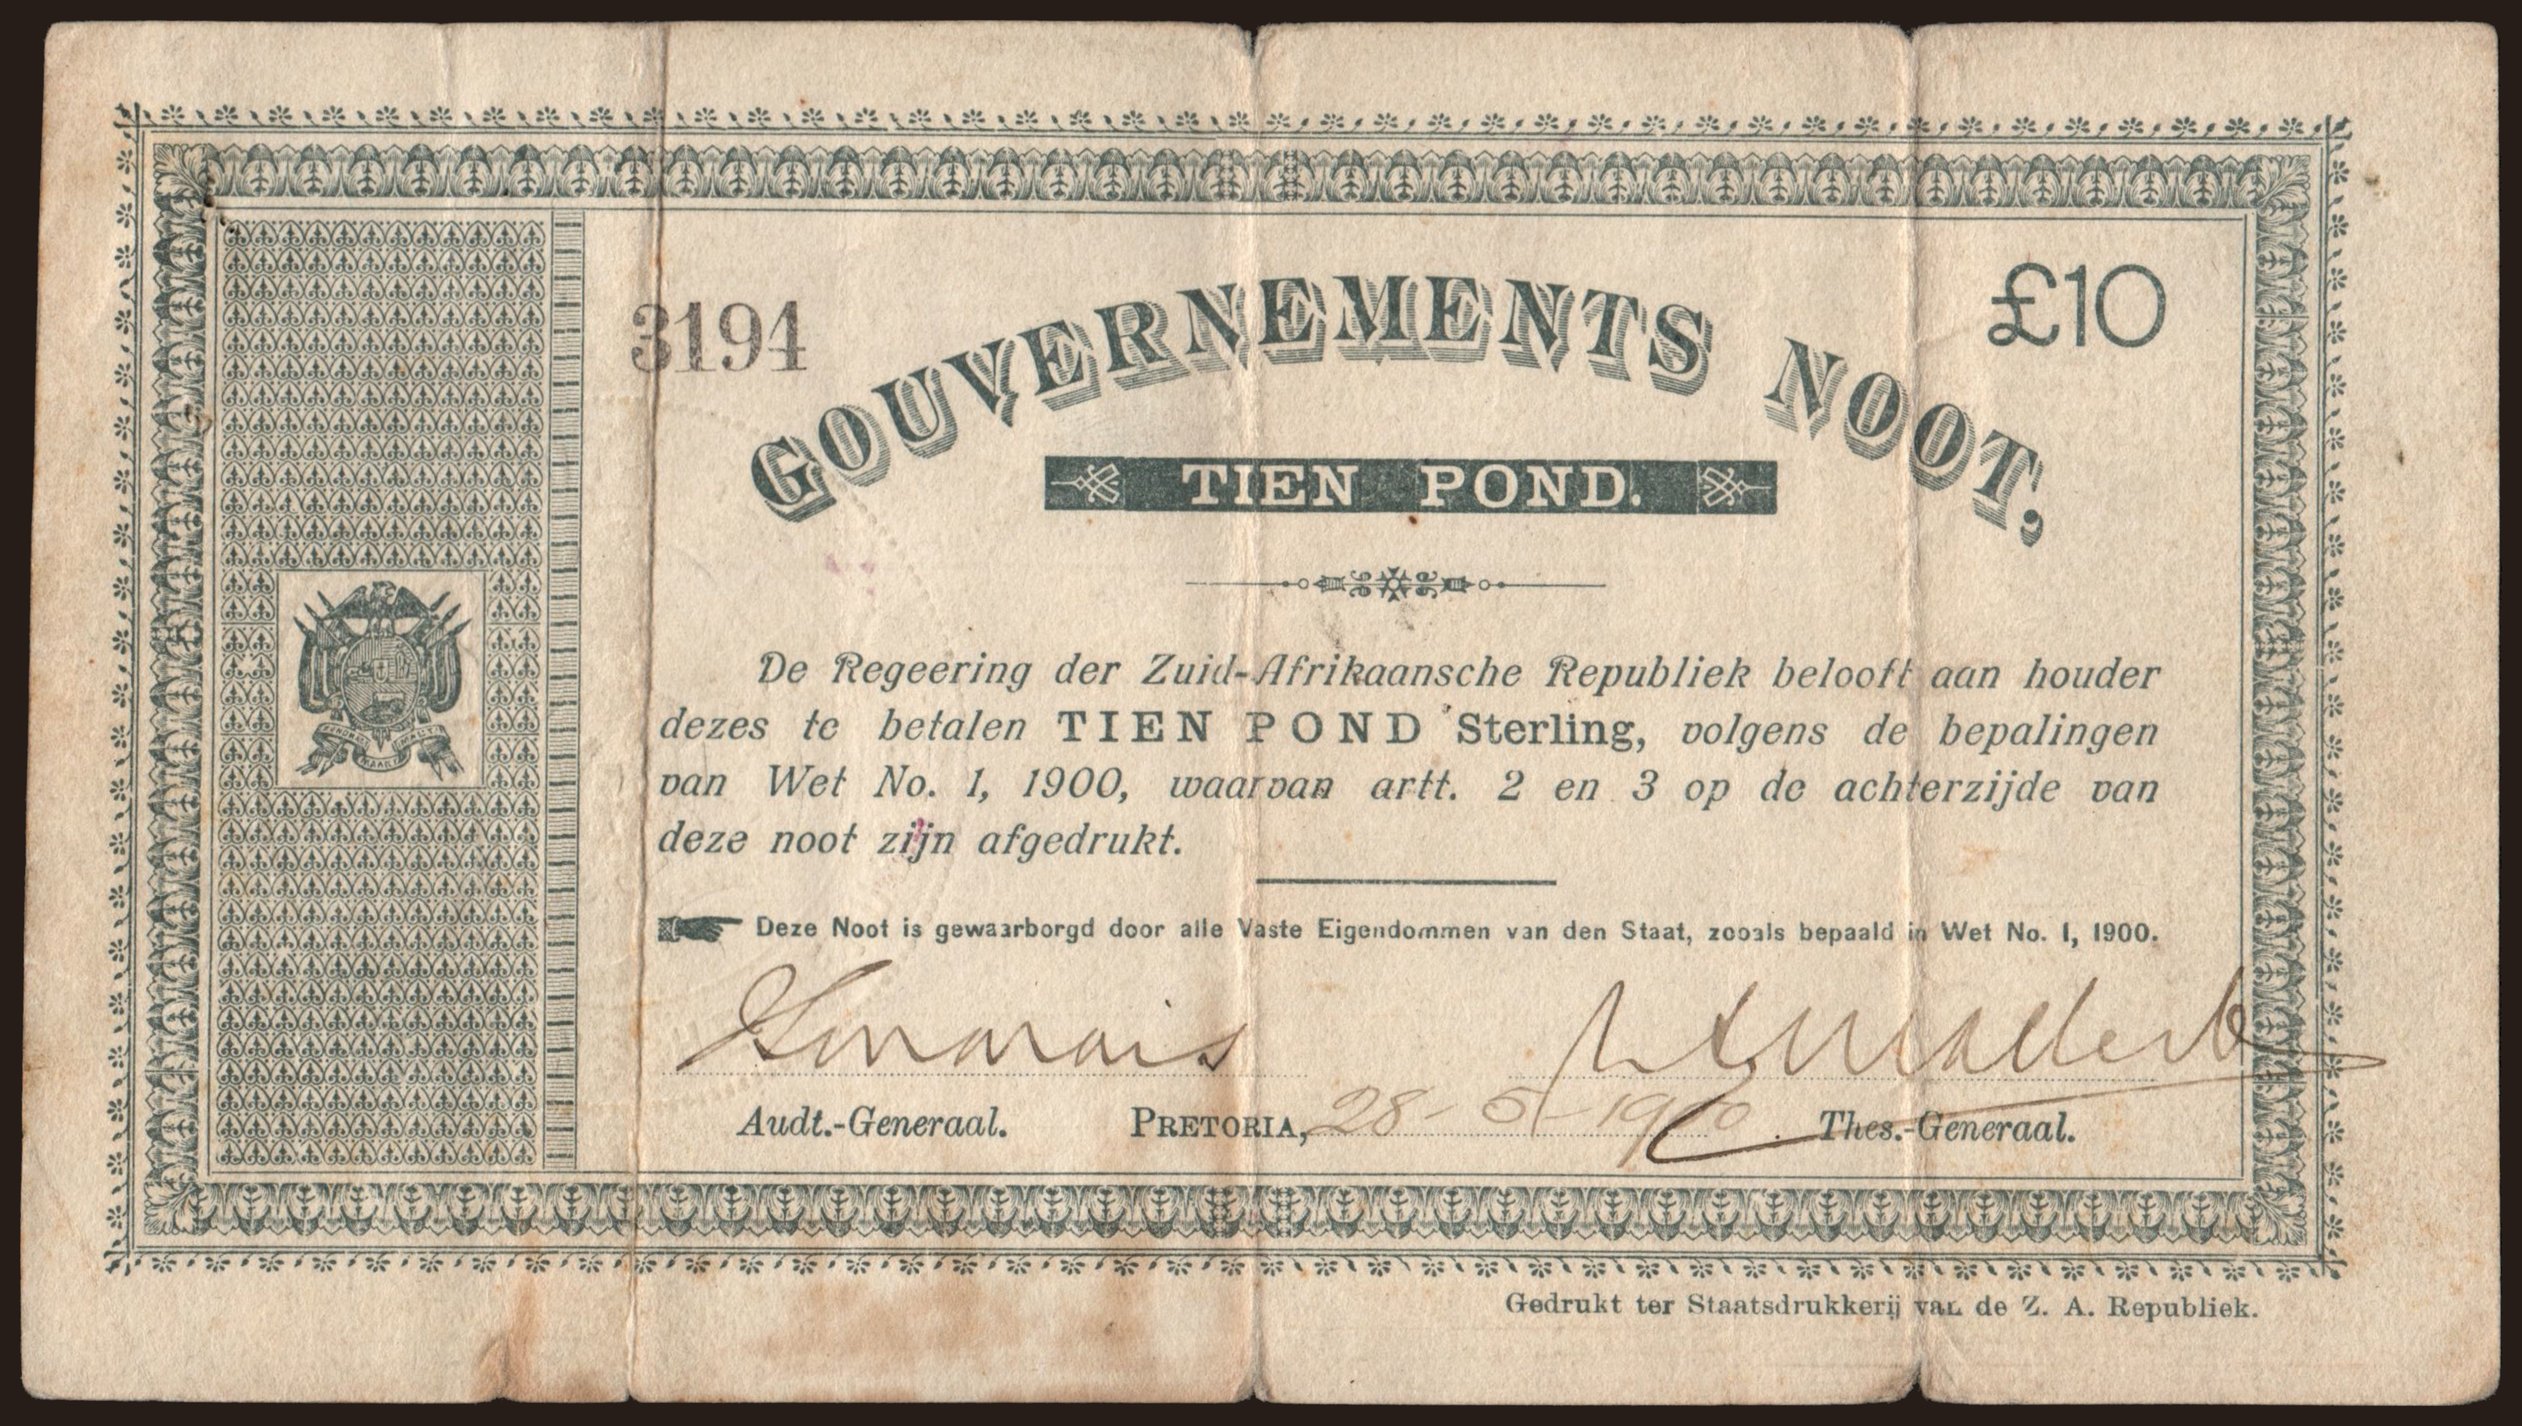 3194
£10
GOUVERNEMENTS NOOT,
TIEN POND.
De Regeering der Zuid-Afrikaansche Republiek belooft aan houder
dezes te betalen TIEN POND Sterling, volgens de bepalingen
van Wet No. 1, 1900, waarvan artt. 2 en 3 op de achterzijde van
deze noot zijn afgedrukt.
Deze Noot is gewaarborgd door alle Vaste Eigendommen van den Staat, zooals bepaald in Wet No. 1, 1900.
Audt.-Generaal. PRETORIA, 28-5-1900 Thes.-Generaal.
Gedrukt ter Staatsdrukkerij van de Z. A. Republiek.